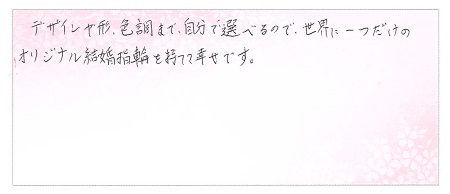 デザインや形、色調まで、自分で選べるので、世界に一つだけの
オリジナル結婚指輪を持てて幸せです。